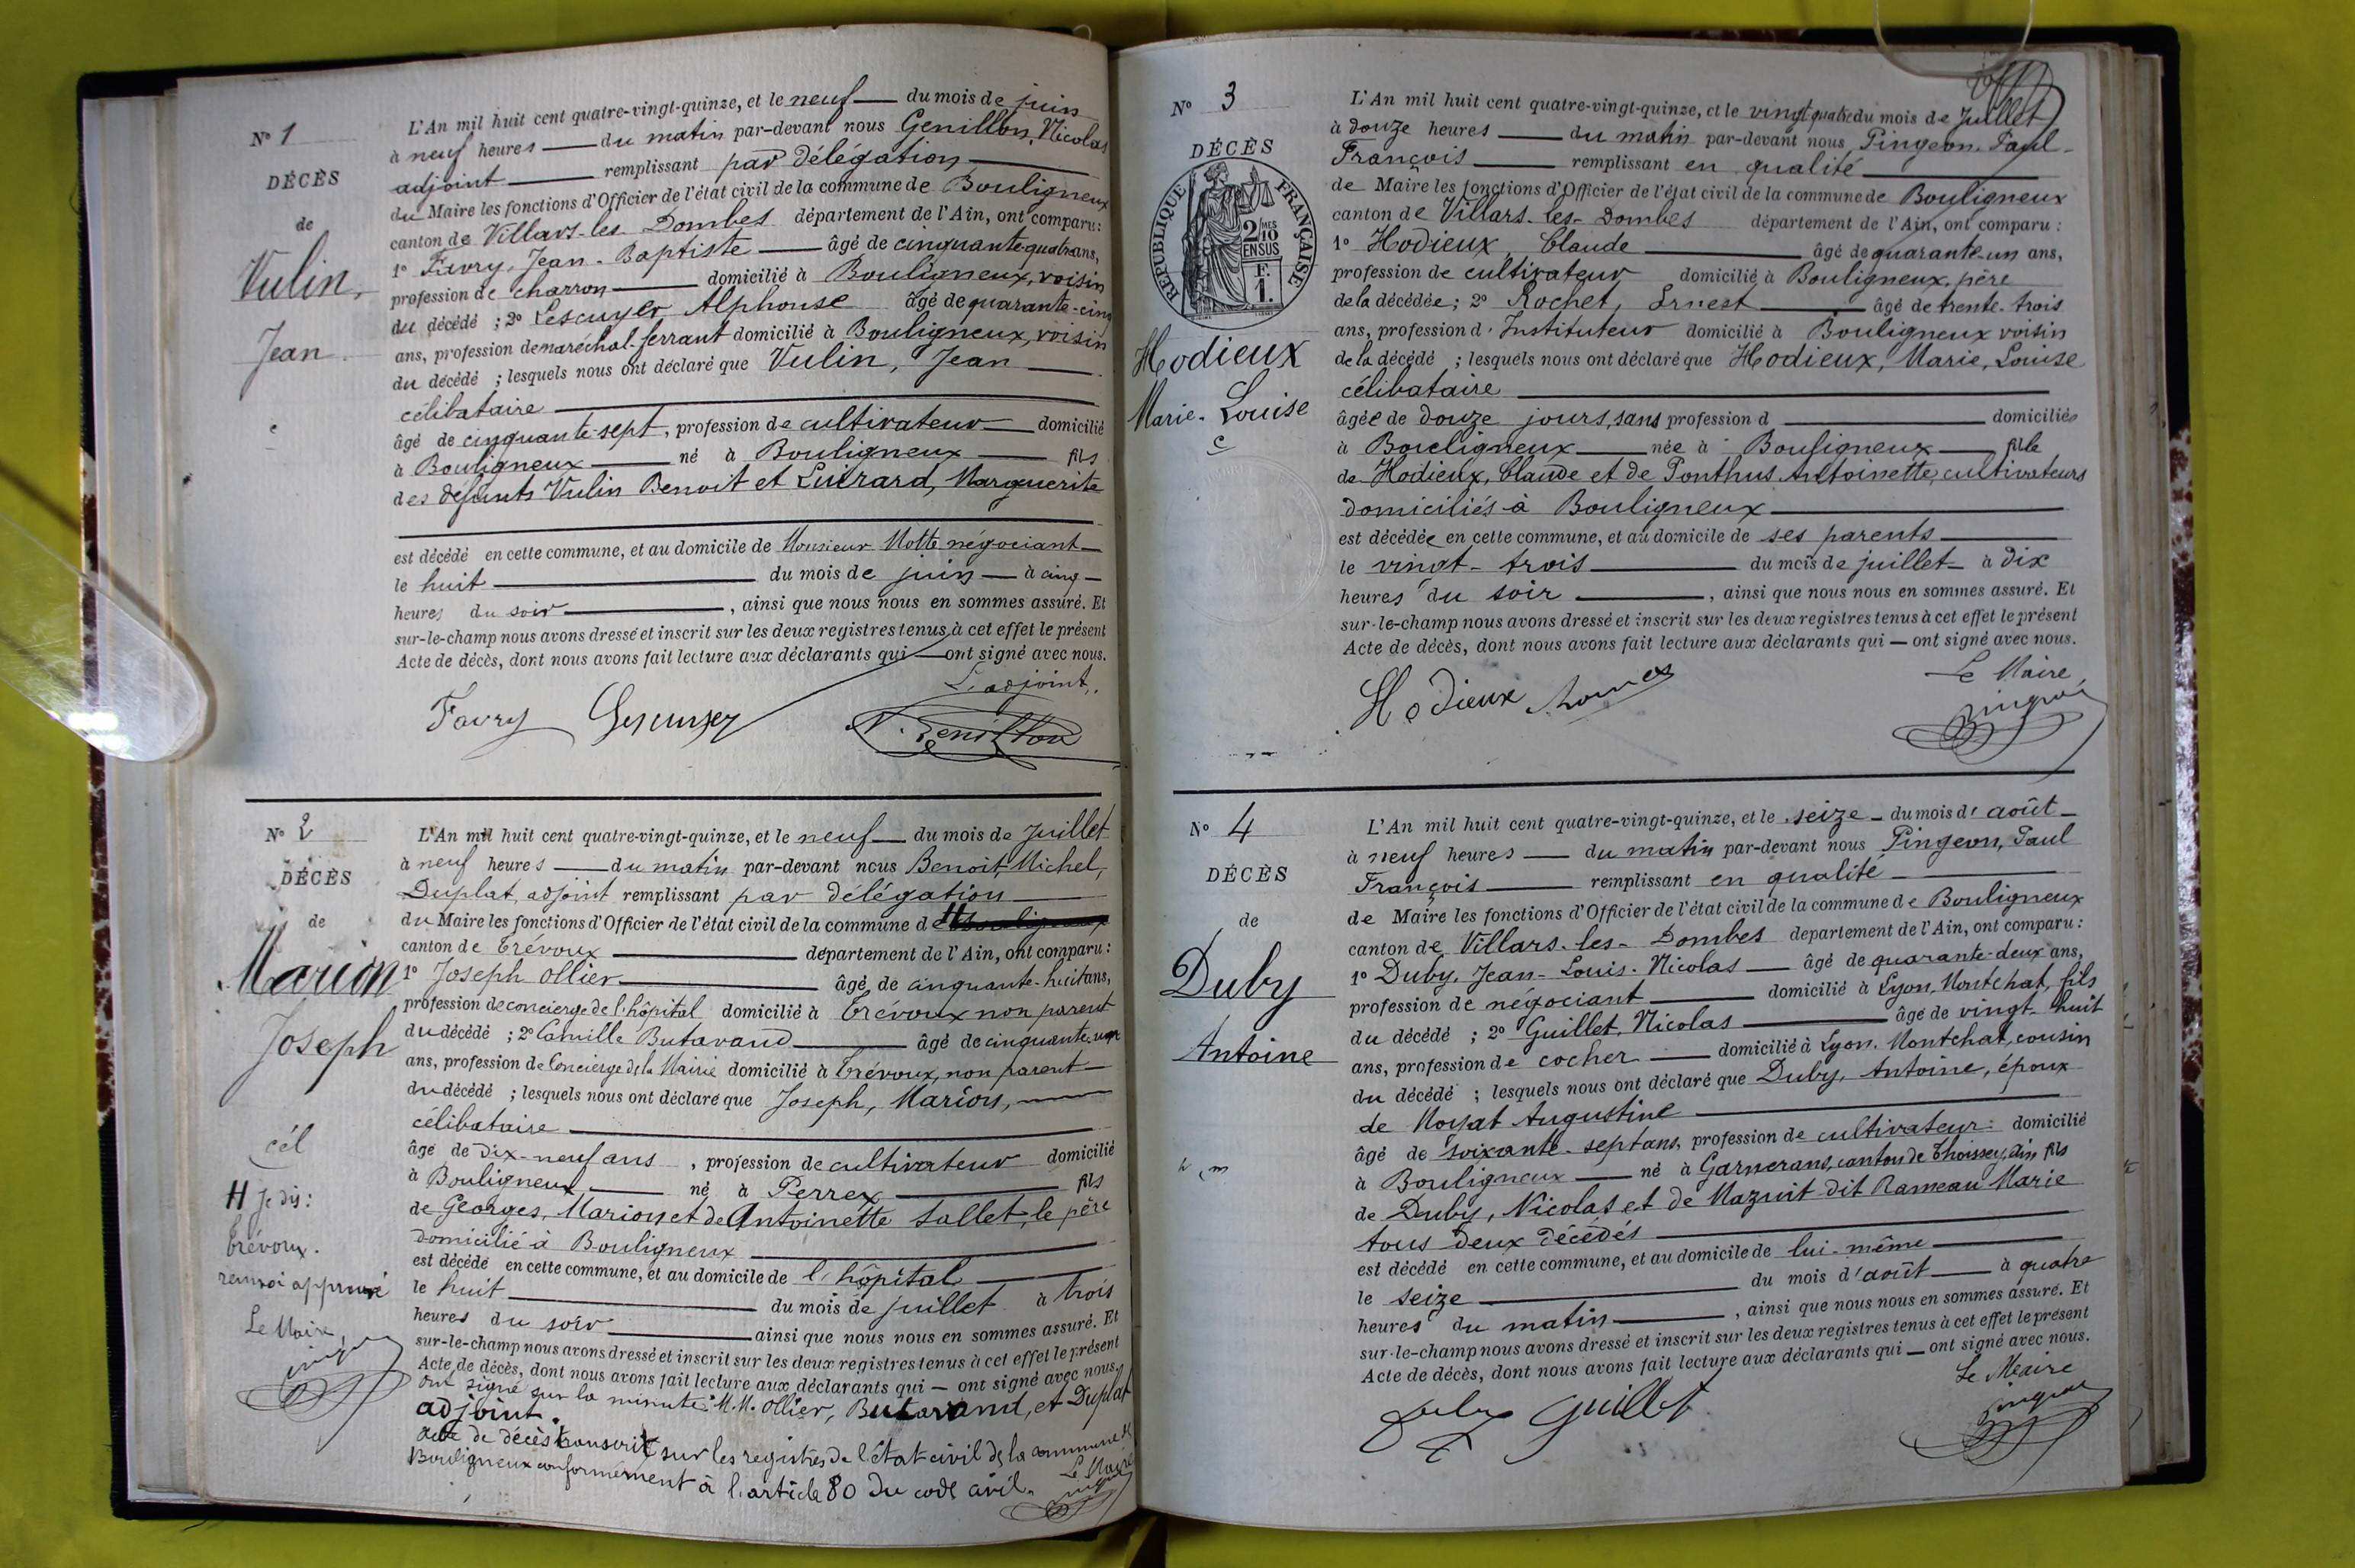 N° 1
DÉCÈS
de
Vulin,
Jean.
c
L'An mil huit cent quatre-vingt-quinze, et le neuf du mois de juin
à neuf heures du matin par-devant nous Genillon, Nicolas
adjoint remplissant par délégation
du Maire les fonctions d'Officier de l'état civil de la commune de Bouligneux
canton de Villars-les Dombes département de l'Ain, ont comparu:
1° Favry, Jean-Baptiste âgé de cinquante-quatre ans,
profession de charron domicilié à Bouligneux, voisin
du décédé ; 2° Lescuyer Alphonse âgé de quarante-cinq
ans, profession de maréchal-ferrant domicilié à Bouligneux, voisin
du décédé ; lesquels nous ont déclaré que Vulin, Jean
célibataire
âgé de cinquante-sept, profession de cultivateur domicilié
à Bouligneux né à Bouligneux fils
des défunts Vulin Benoit et Marguerite
est décédé en cette commune, et au domicile de Monsieur Motte négociant
le huit du mois de juin à cinq
heures du soir, ainsi que nous nous en sommes assuré. Et
sur-le-champ nous avons dressé et inscrit sur les deux registres tenus à cet effet le présent
Acte de décès, dont nous avons fait lecture aux déclarants qui ont signé avec nous.
L'adjoint,
Favry Lescuyer N. Genillon
N° 2
DÉCÈS
de
Marion
Joseph
cél
H Je dis:
Trévoux.
renvoi approuvé
Le Maire,
L'An mil huit cent quatre-vingt-quinze, et le neuf du mois de Juillet
à neuf heures du matin par-devant nous Benoit, Michel,
Duplat, adjoint remplissant par délégation
du Maire les fonctions d'Officier de l'état civil de la commune de H Bouligneux
canton de Trévoux département de l'Ain, ont comparu:
1° Joseph Ollier âgé de cinquante-huit ans,
profession de concierge de l'hôpital domicilié à Trévoux non parent
du décédé ; 2° Camille Butavand âgé de cinquante-un
ans, profession de Concierge de la Mairie domicilié à Trévoux, non parent
du décédé ; lesquels nous ont déclaré que Joseph, Marion,
célibataire
âgé de dix-neuf ans, profession de cultivateur domicilié
à Bouligneux né à Perrex fils
de Georges, Marion et de Antoinette Sallet, le père
domicilié à Bouligneux
est décédé en cette commune, et au domicile de l'hôpital
le huit du mois de juillet à trois
heures du soir ainsi que nous nous en sommes assuré. Et
sur-le-champ nous avons dressé et inscrit sur les deux registres tenus à cet effet le présent
Acte de décès, dont nous avons fait lecture aux déclarants qui — ont signé avec nous.
Ont signé sur la minute: M.M. Ollier, Butavand, et Duplat
adjoint.
Acte de décès transcrit sur les registres de l'état civil de la commune de
Bouligneux conformément à l'article 80 du code civil.
Le Maire
N° 3
DÉCÈS
RÉPUBLIQUE FRANÇAISE
2/10 MES
EN SUS
F.
1.
Hodieux
Marie-Louise
c
L'An mil huit cent quatre-vingt-quinze, et le vingt-quatre du mois de Juillet
à douze heures du matin par-devant nous Pingeon, Paul-
François remplissant en qualité
de Maire les fonctions d'Officier de l'état civil de la commune de Bouligneux
canton de Villars-les-Dombes département de l'Ain, ont comparu :
1° Hodieux, Claude âgé de quarante-un ans,
profession de cultivateur domicilié à Bouligneux, père
de la décédée ; 2° Rochet, Ernest âgé de trente-trois
ans, profession d'Instituteur domicilié à Bouligneux voisin
de la décédé ; lesquels nous ont déclaré que Hodieux, Marie, Louise
célibataire
âgée de douze jours, sans profession d domiciliée
à Bouligneux née à Bouligneux fille
de Hodieux, Claude et de Ponthus Antoinette, cultivateurs
domiciliés à Bouligneux
est décédée en cette commune, et au domicile de ses parents
le vingt-trois du mois de juillet à dix
heures du soir, ainsi que nous nous en sommes assuré. Et
sur-le-champ nous avons dressé et inscrit sur les deux registres tenus à cet effet le présent
Acte de décès, dont nous avons fait lecture aux déclarants qui — ont signé avec nous.
Le Maire
Hodieux
Pingeon
N° 4
DÉCÈS
de
Duby
Antoine
m
L'An mil huit cent quatre-vingt-quinze, et le seize du mois d'août
à neuf heures du matin par-devant nous Pingeon, Paul
François remplissant en qualité
de Maire les fonctions d'Officier de l'état civil de la commune de Bouligneux
canton de Villars-les-Dombes département de l'Ain, ont comparu :
1° Duby, Jean-Louis-Nicolas âgé de quarante-deux ans,
profession de négociant domicilié à Lyon, Montchat, fils
du décédé ; 2° Guillet, Nicolas âgé de vingt-huit
ans, profession de cocher domicilié à Lyon, Montchat, cousin
du décédé ; lesquels nous ont déclaré que Duby, Antoine, époux
de Augustine
âgé de soixante-sept ans, profession de cultivateur domicilié
à Bouligneux né à Garnerans, canton de Thoissey, Ain fils
de Duby, Nicolas et de Mazuit dit Rameau Marie
tous deux décédés
est décédé en cette commune, et au domicile de lui-même
le seize du mois d'août à quatre
heures du matin, ainsi que nous nous en sommes assuré. Et
sur-le-champ nous avons dressé et inscrit sur les deux registres tenus à cet effet le présent
Acte de décès, dont nous avons fait lecture aux déclarants qui — ont signé avec nous.
Le Maire
Duby Guillet
Pingeon